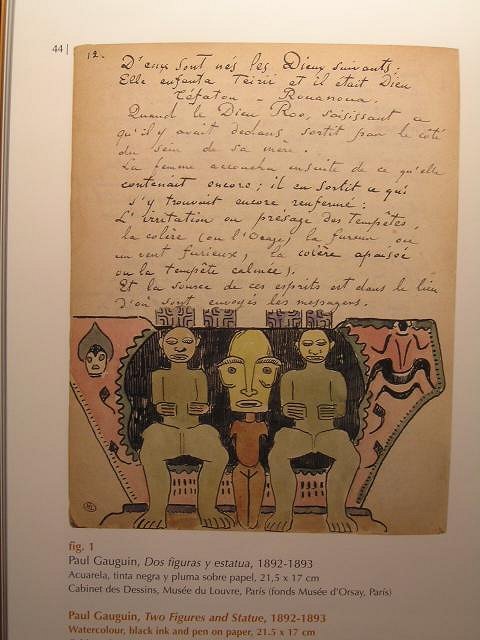 44
12.
D'eux sont nés les Dieux suivants:
Elle enfanta Teirii et il était Dieu
Téfatou - Rouanoua.
Quand le Dieu Roo, saisissant a
qu'il y avait dedans sortit par le côté
du sein de sa mère.
La femme accoucha ensuite de ce qu'elle
contenait encore; il en sortit ce qui
s'y trouvait encore renfermé:
L'irritation ou présage des Tempêtes,
la colère (ou l'Orage) la fureur ou
un vent furieux, la colère apaisée
ou la tempête calmée).
Et la source de ces esprits est dans le lieu
D'où sont envoyés les messagers.
fig. 1
Paul Gauguin, Dos figuras y estatua, 1892-1893
Acuarela, tinta negra y pluma sobre papel, 21,5 x 17 cm
Cabinet des Dessins, Musée du Louvre, París (fonds Musée d'Orsay, París)
Paul Gauguin, Two Figures and Statue, 1892-1893
Watercolour, black ink and pen on paper, 21.5 x 17 cm